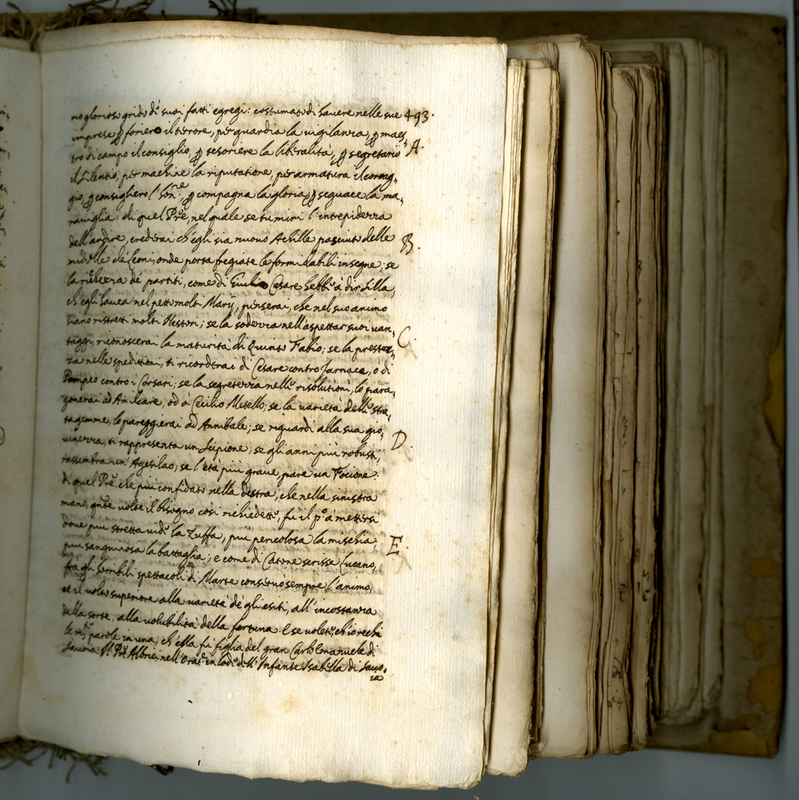 no glorioso grido de suoi fatti egregi: costumato di havere nelle sue 493.
imprese ꝑ foriero il terrore, per guardia la vigilanza, ꝑ maes,
tro di campo il consiglio, ꝑ tesoriere la liberalità, ꝑ segretario A.
il silentio, per machine la riputatione, per armatura il corag,
gio, ꝑ consigliero l' ꝑ compagna la gloria, ꝑ seguace la ma,
raviglia: di quel Pre, nel quale se tu miri l'intrepidezza
dell'ardire, crederai ch'egli sia nuovo Achille pasciuto delle B.
midolle de leoni, onde porta fregiate le formidabili insegne; se
la de partiti, come di Giulio Cesare hebbe à dir Silla,
ch'egli havea nel petto molti Marij, penserai, che nel suo animo
siano ristretti molti Nestori; se la sodezza nell'aspettar suoi van, C.
taggi, riconoscerai la maturità di Quinto Fabio; se la prestez,
za nelle speditioni, ti ricorderai di Cesare contro Farnace, ò di
Pompeo contro i Corsari; se la segretezza nelle risolutioni, lo para,
gonerai ad Amilcare, od à Cecilio Metello; se la varietà dell' stra,
tagemme, lo pareggierai ad Annibale; se riguardi alla sua gio, D.
vinezza, ti rappresenta un Scipione; se gli anni più robusti,
rassembra un' Agesilao; se l'età più grave, pare un Focione:
di quel Pre, che più confidato nella destra, che nella sinistra
mano, qnte volte il bisogno così richiedette, fù il po a mettersi
dove più stretta vide la zuffa, più pericolosa la mischia, E.
più sanguinosa la battaglia; e come di Catone scrisse Lucano,
fra gli horribili spettacoli di Marte conservò sempre l'animo,
et il volto superiore alla varietà de gli esiti, all'incostanza
della sorte, alla volubilità della fortuna. E se volete ch'io rechi
le mte parole in una, ch'ella fù figlia del gran Carlo Emanuele di
Savoia. Il Pre Albrici nell'Orate in lode dell' Infante Isabella di Savo,
ia